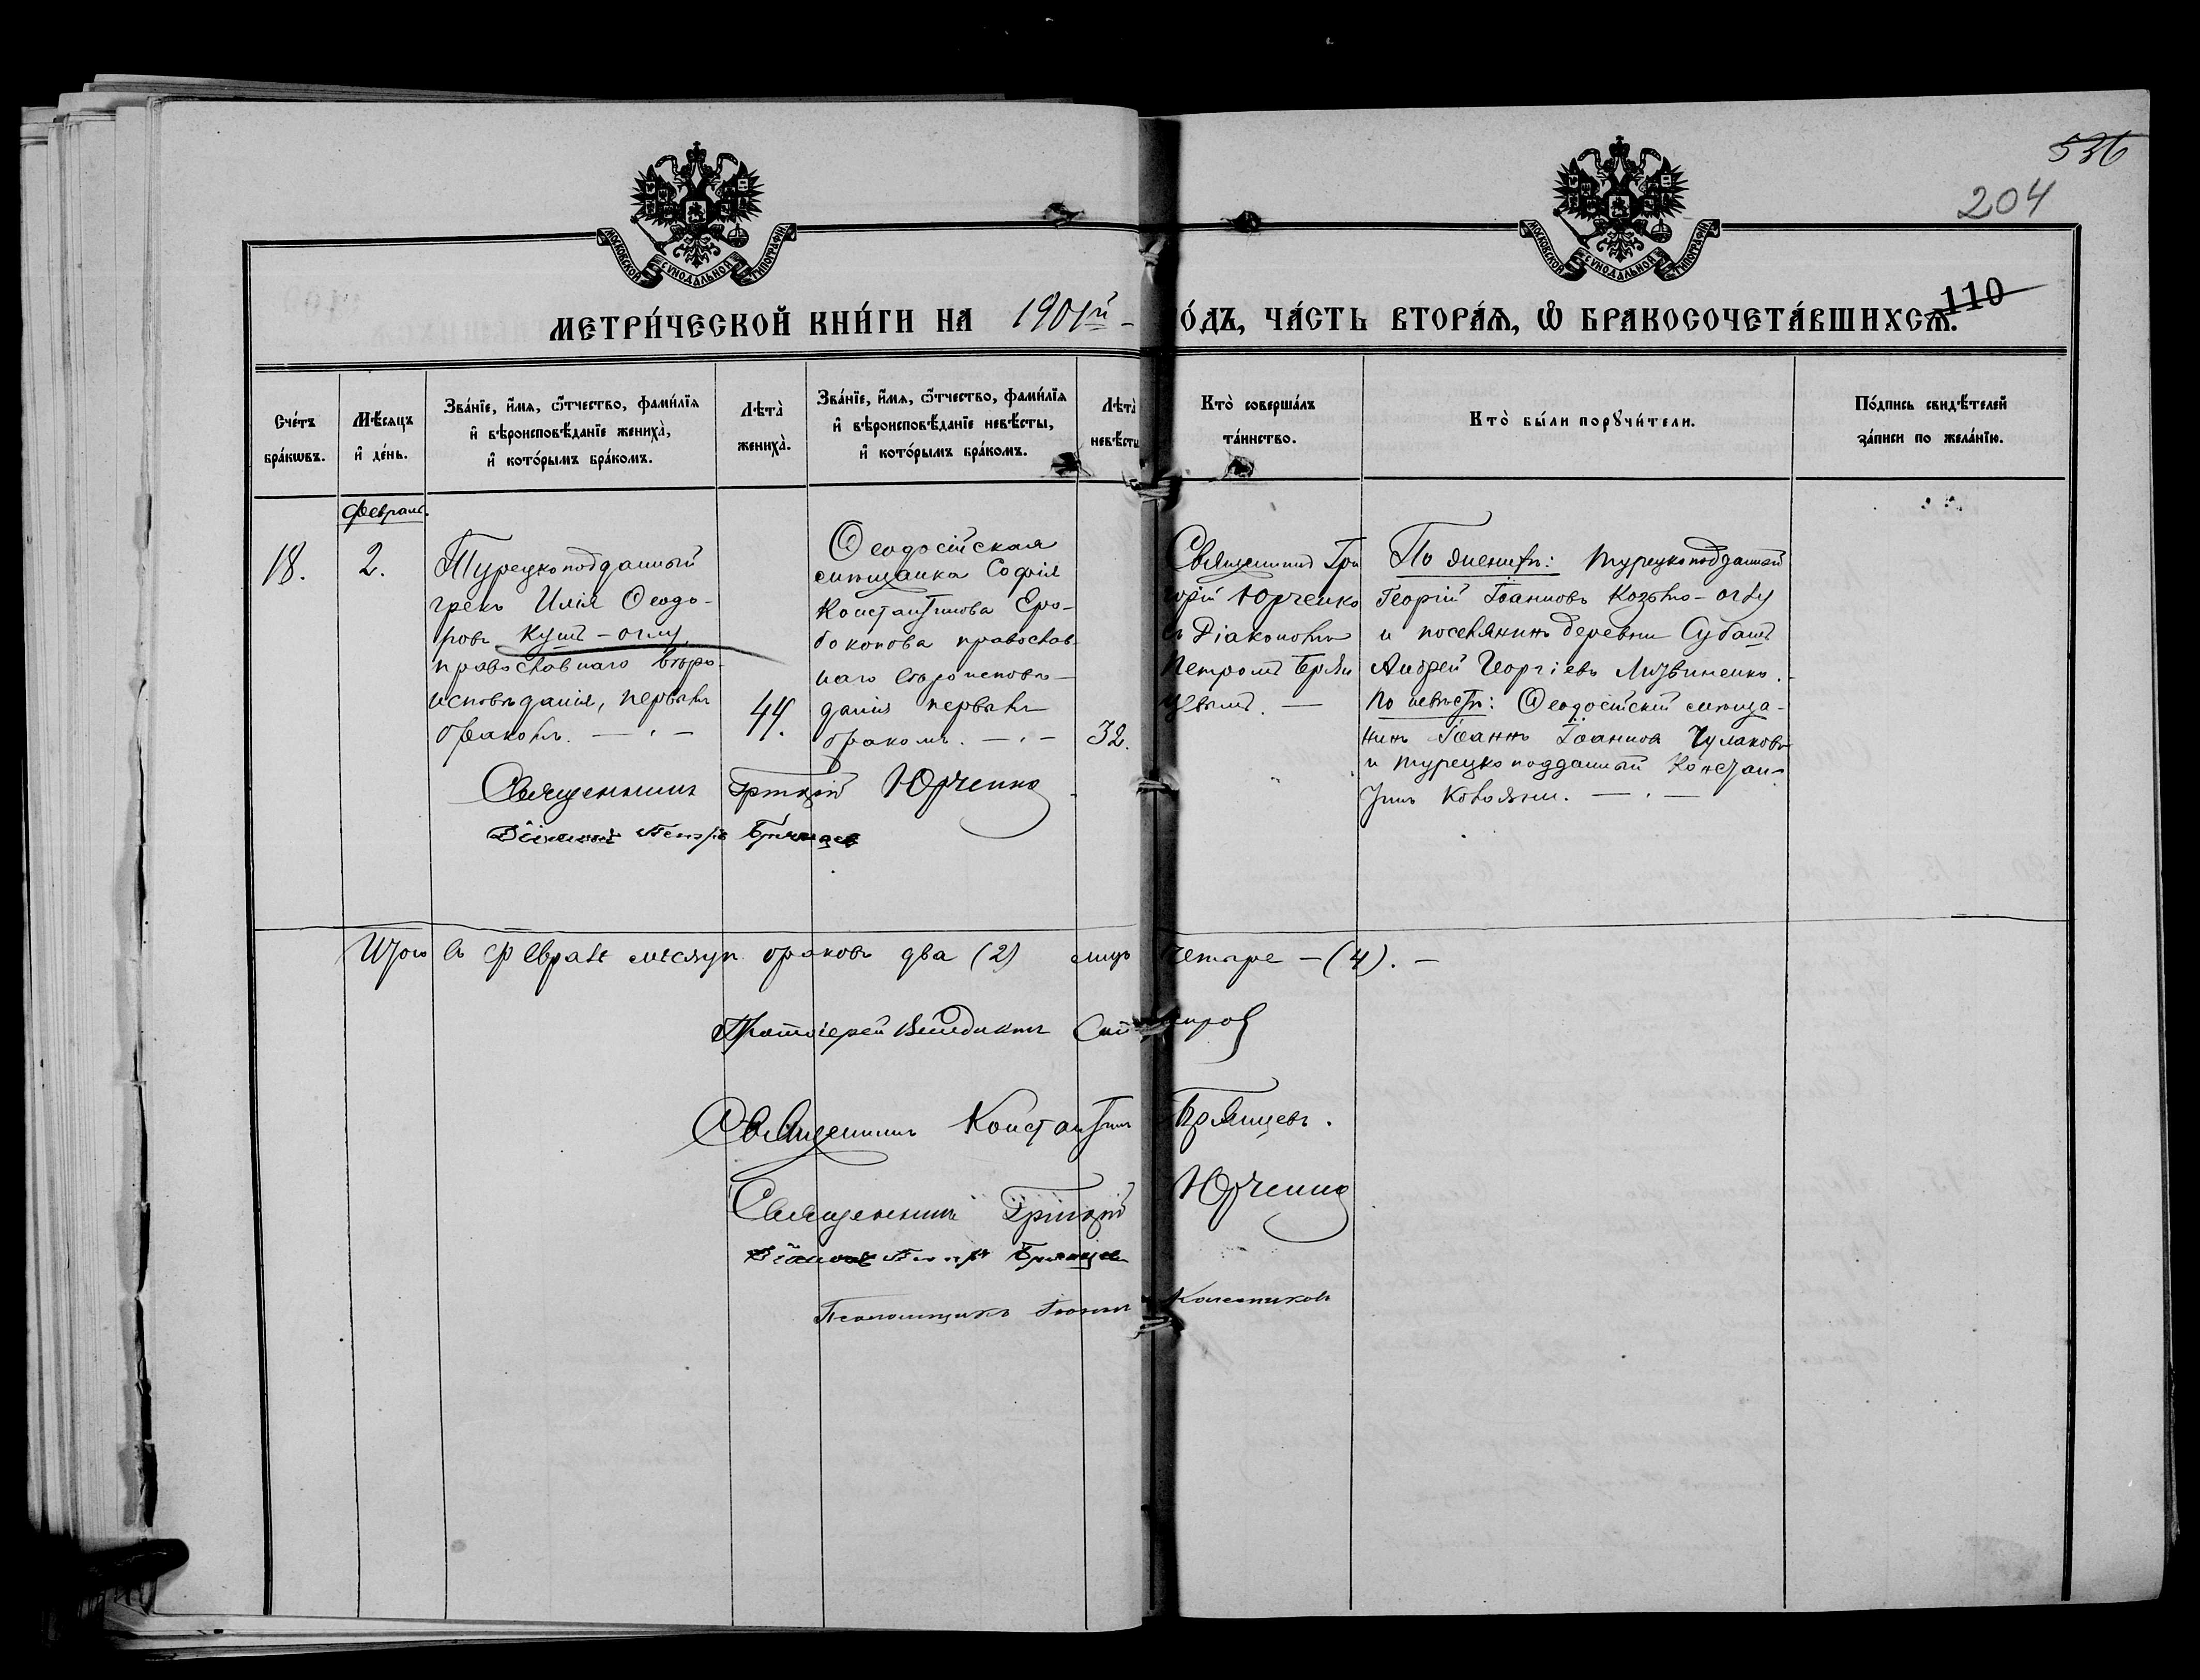 536
204
110
МОСКОВСКОЙ СѴНОДАЛЬНОЙ ТИПОГРАФІИ
МОСКОВСКОЙ СѴНОДАЛЬНОЙ ТИПОГРАФІИ
МЕТРИ́ЧЕСКОЙ КНИ́ГИ НА 1901й О́ДЪ, ЧА́СТЬ ВТОРА́Я, Ѡ БРАКОСОЧЕТА́ВШИХСЯ.
Сче́тъ
бра́кѡвъ.
Мѣ́сяцъ
и҆ де́нь.
Зва́нїе, и҆́мя, ѻ҆́тчество, фами́лїя
и҆ вѣроисповѣ́данїе жениха̀,
и҆ кото́рымъ бра́комъ.
Лѣта̀
жениха̀.
Зва́нїе, и҆́мя, ѻ҆́тчество, фами́лїя
и҆ вѣроисповѣ́данїе невѣ́сты,
и҆ кото́рымъ бра́комъ.
Лѣта̀
невѣ́сты
Кто̀ соверша́лъ
та́инство.
Кто̀ бы́ли порꙋчи́тели.
По́дпись свидѣ́телей
за́писи по жела́нїю.
Февраль.
18.
2.
Турецкоподданный
грекъ Илія Ѳеодо-
ровъ Кушъ-оглу
православнаго вѣро-
исповѣданія, первымъ
бракомъ. — . —
44.
Ѳеодосійская
мѣщанка Софія
Константинова Еро-
боконова православ
наго вѣроисповѣ-
данія первымъ
бракомъ. — . —
32.
Священникъ Гри
горій Юрченко
съ Діакономъ
Петромъ Брян
цевымъ. —
По женихѣ: Турецкоподданный
Георгій Іоанновъ -оглу
и поселянинъ деревни Субашъ
Андрей Георгіевъ Литвиненко.
По невѣстѣ: Ѳеодосійскій мѣща-
нинъ Іоаннъ Іоанновъ Чулаковъ
и турецкоподданный Констан-
тинъ . — . —
Священникъ Григорій Юрченко
Діаконъ Петръ Брянцев
Итого въ Февралѣ мѣсяцѣ браковъ два (2) лицъ четыре — (4). —
Протоіерей Венедиктъ
Священникъ Константинъ Брянцевъ.
Священникъ Григорій Юрченко
Діаконъ Петръ Брянцев
Псаломщикъ Колесниковъ